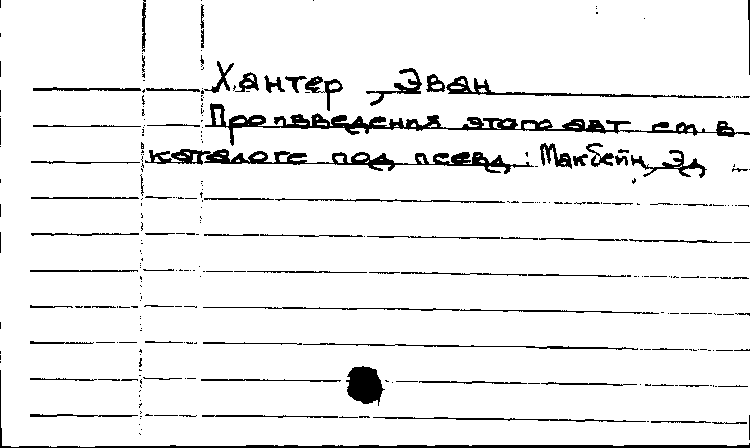 Хантер, Эван
Произведения этого авт. см. в
каталоге под псевд.: Макбейн, Эд